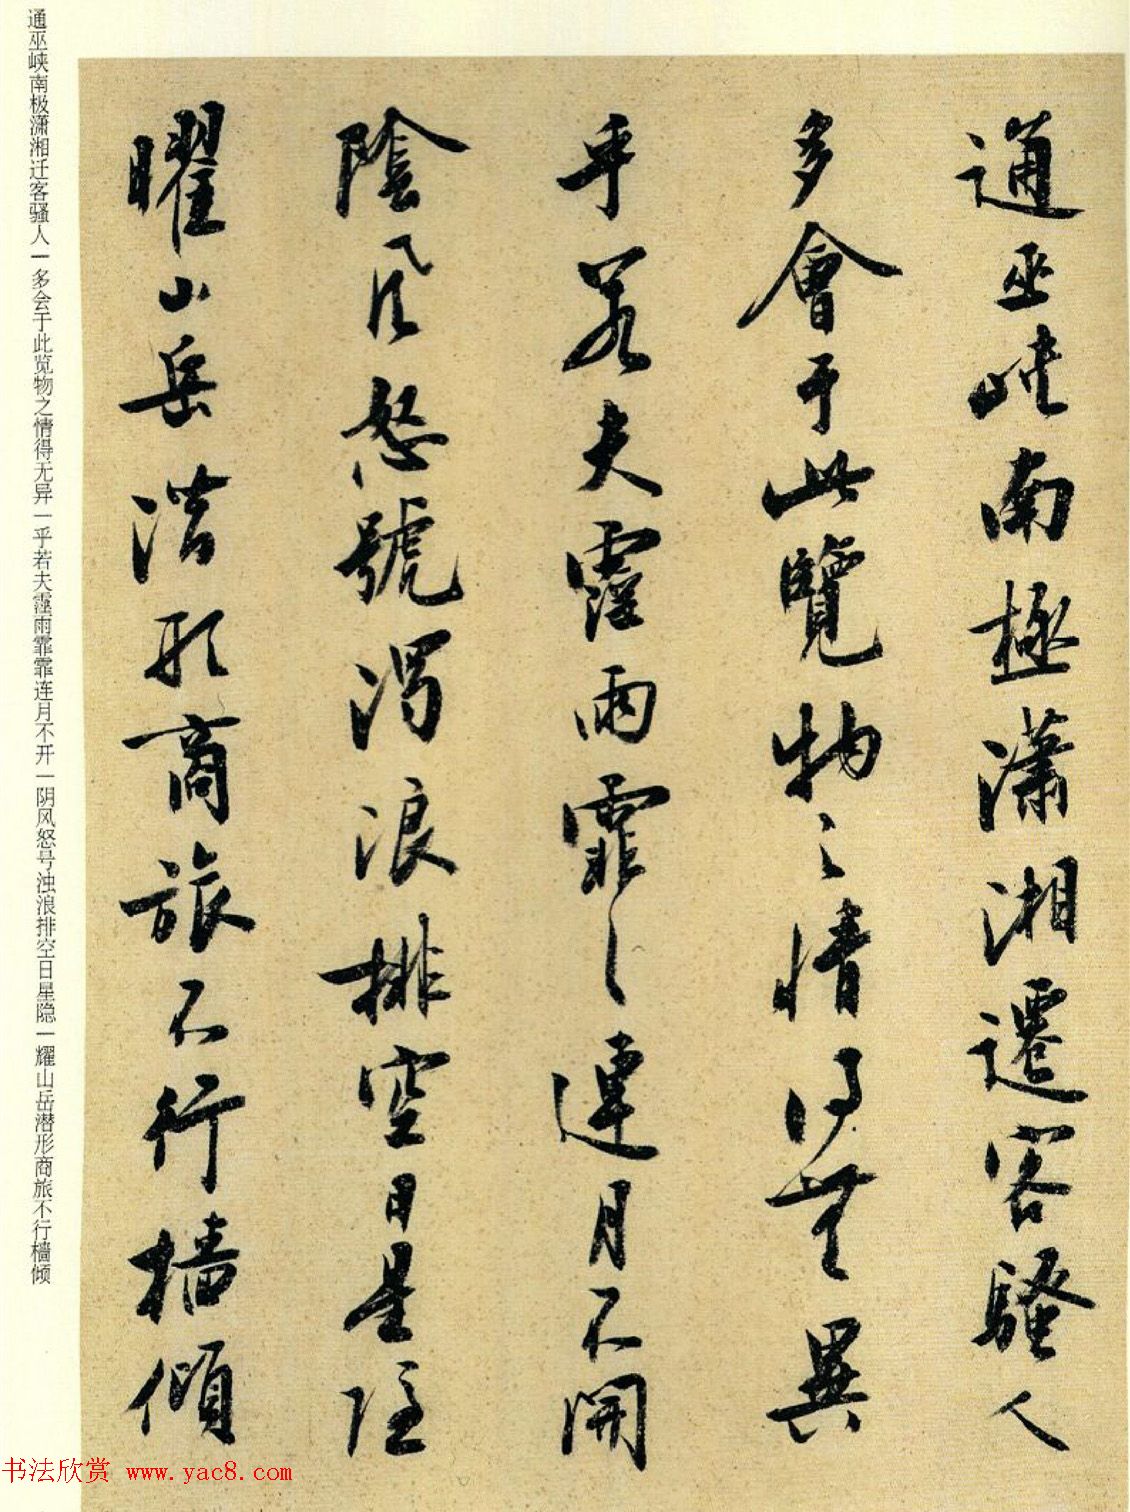 通巫峽南極瀟湘遷客騷人
多會于此覽物之情得無異
乎若夫霪雨霏〻連月不開
陰風怒號濁浪排空日星隱
曜山岳潛形商旅不行檣傾
通巫峡南极潇湘迁客骚人—多会于此览物之情得无异—乎若夫霪雨霏霏连月不开—阴风怒号浊浪排空日星隐—耀山岳潜形商旅不行樯倾
书法欣赏 www.yac8.com